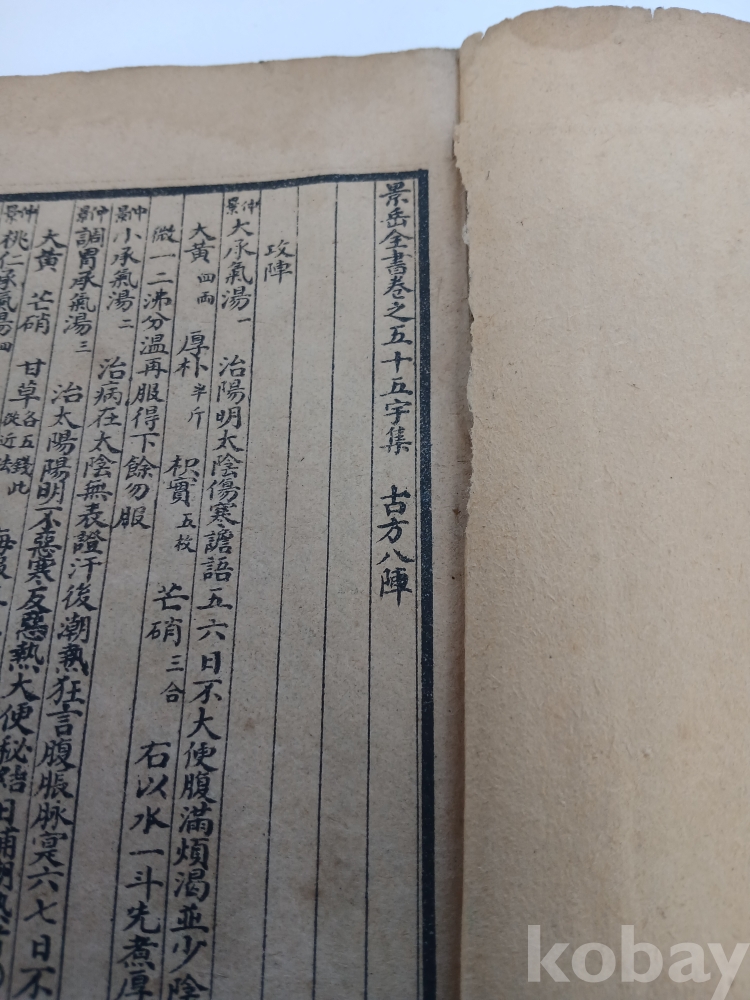 景岳全書卷之五十五字集 古方八陣
攻陣
仲景大承氣湯一 治陽明太陰傷寒譫語五六日不大便腹滿煩渴並少陰
大黃四兩 厚朴半斤 枳實五枚 芒硝三合 右以水一斗先煮厚
微一二沸分溫再服得下餘勿服
仲景小承氣湯二 治病在太陰無表證汗後潮熱狂言腹脹脉實六七日不
仲景調胃承氣湯三 治太陽陽明不惡寒反惡熱大便秘結日晡潮熱者
大黃 芒硝 甘草各五錢此從近法 每服
仲景桃仁承氣湯四
kobay